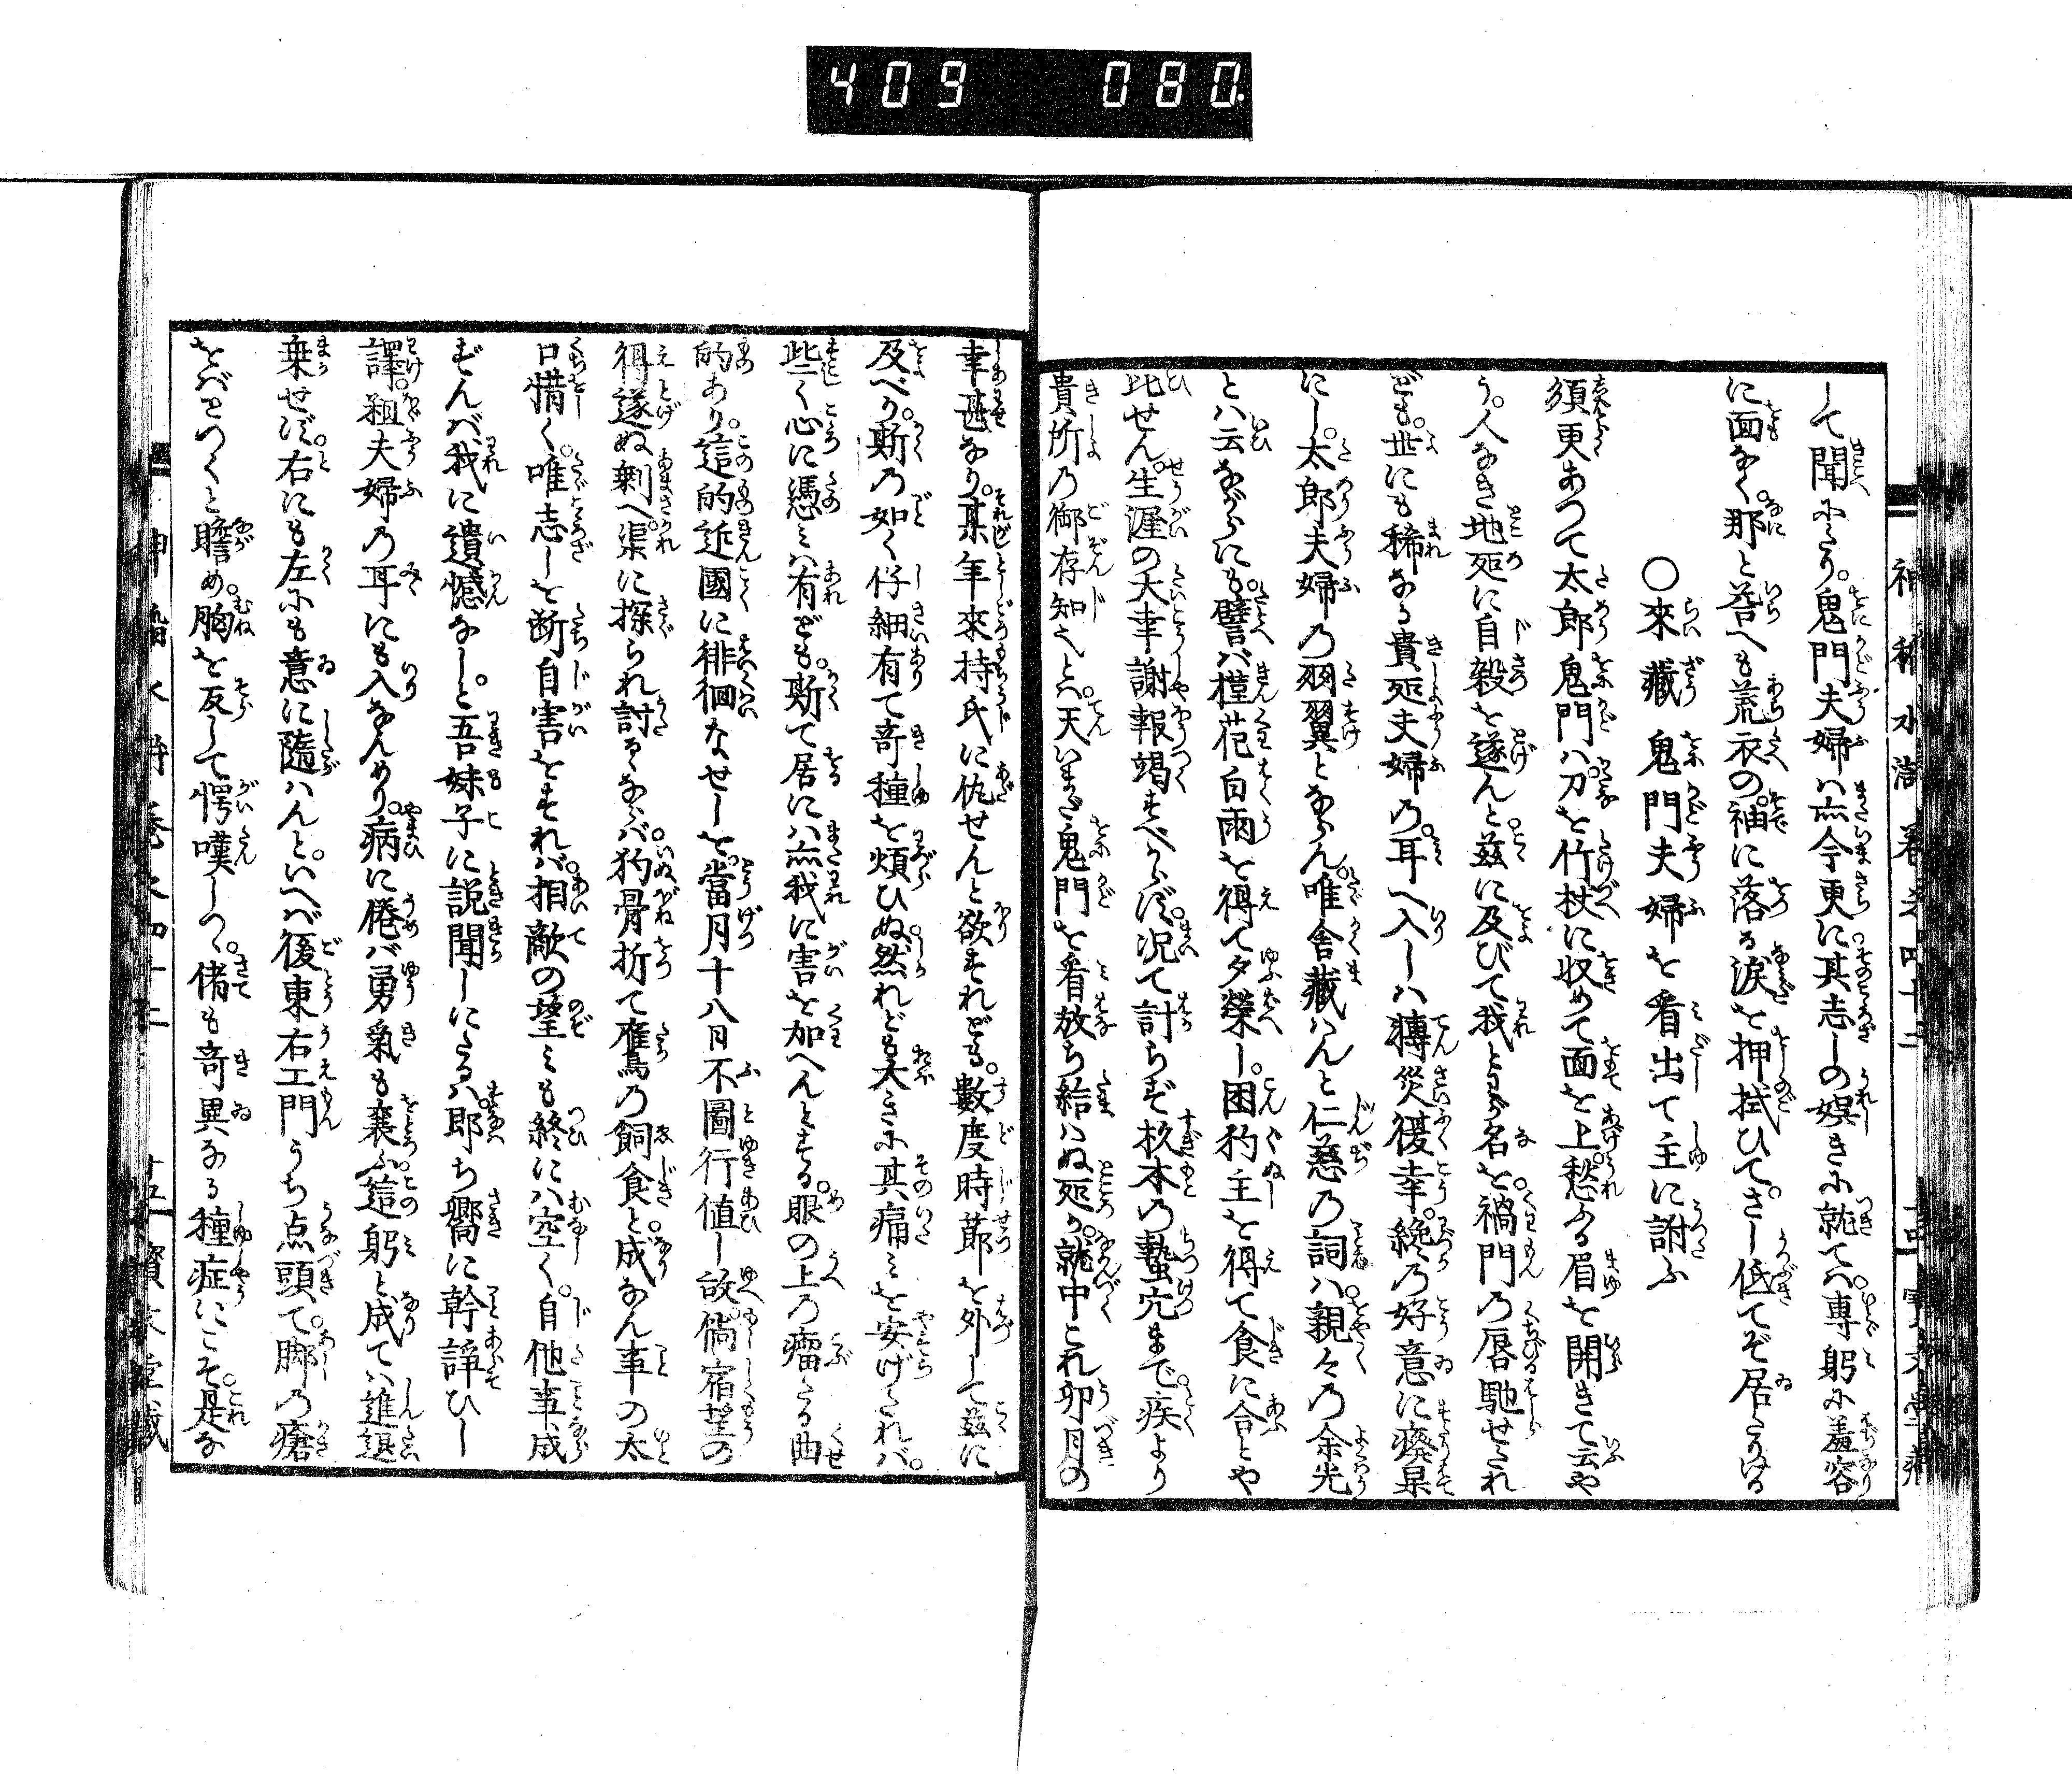 409 080
神稲水滸 巻之四十二
して聞ふたり。鬼門夫婦ハ亦今更に其志しの娯きふ就てハ。専躬ふ羞容
に面なく。那と荅へも荒衣の。袖に落る涙を押拭ひて。さし低てぞ居たりける
〇來藏鬼門夫婦を看出て主に訃ふ
須更あつて太郎鬼門ハ。刀を竹杖に収めて面を上。愁ふる眉を開きて云や
う。人なき地処に自殺を遂んと。茲に及びて我とわが名を。禍門の唇馳せたれ
ども。世にも稀なる貴処夫婦の。耳へ入しハ轉災復幸。纔の好意に瘵杲
にし。太郎夫婦の羽翼とならん。唯舎藏ハんと仁慈の詞ハ。親々の余光
とハ云ながらにも。譬バ槿花白雨を得て夕榮し。困犳主を得て食に合とや
比せん。生涯の大幸謝報竭すべからず。况て計らず杦本の。蟄穴まで疾より
貴所の御存知之とハ。天いまだ鬼門を看放ち給ハぬ処か。就中これ卯月の
幸甚なり。某年來持氏に仇せんと欲すれども。數度時莭を外して茲に
及べり。斯の如く仔細有て竒種を煩ひぬ。然れども大きふ其痛ミを安げたれバ。
些しく心に憑ミハ有ども。斯て居にハ亦我に害を加へんとする。眼の上の瘤たる曲
的あり。這的近國に徘徊なせしを。當月十八日不圖行値し故。倘宿望の
得遂ぬ剰へ。渠に探られ討るゝならバ。犳骨折て鷹の飼食と。成なん事の太
口惜く。唯志しを断自害をすれバ。相敵の望ミも終にハ空く。自他事成
ずんバ我に遺憾なし。と吾妹子に説聞しにたるハ。郎ち嚮に幹諍ひし
譯。粗夫婦の耳にも入なんめり。病に倦バ勇氣も衰ふ。這躬と成てハ進退
乗せず。右にも左ふも意に隨ハんと。いへバ後東右エ門うち点頭て。脚の瘡
をバとつくと瞻め。胸を反して愕嘆しつゝ。偖も竒異なる種症にこそ。是な